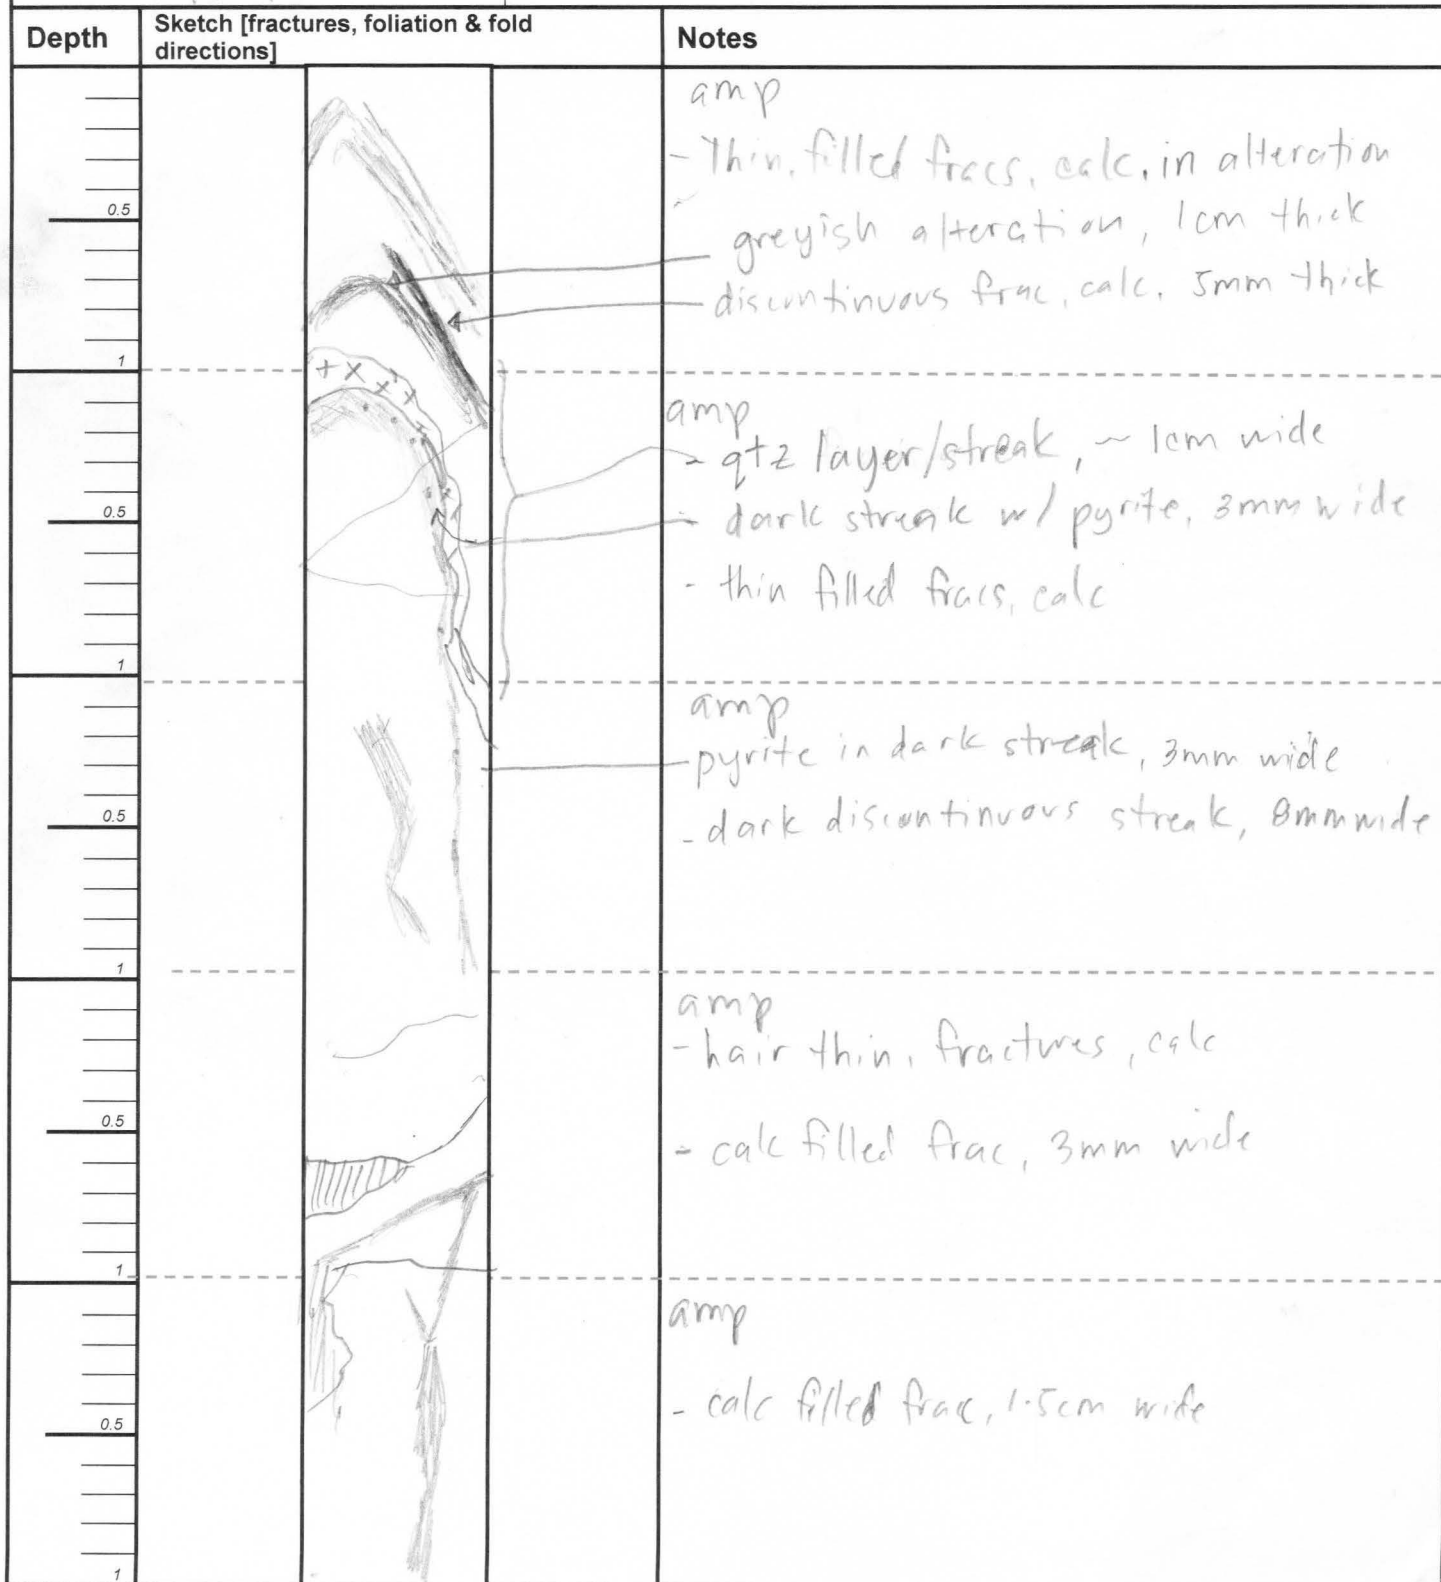 Depth
Sketch [fractures, foliation & fold
directions]
Notes
amp
- Thin, filled fracs, calc, in alteration
0.5
greyish alteration, 1cm thick
discontinuous frac, calc, 5mm thick
1
amp
- qtz layer/streak, ~ 1cm wide
0.5
- dark streak w/ pyrite, 3mm wide
- thin filled fracs, calc
1
amp
- pyrite in dark streak, 3mm wide
0.5
- dark discontinuous streak, 8mm wide
1
amp
- hair thin, fractures, calc
0.5
- calc filled frac, 3mm wide
1
amp
- calc filled frac, 1.5cm wide
0.5
1